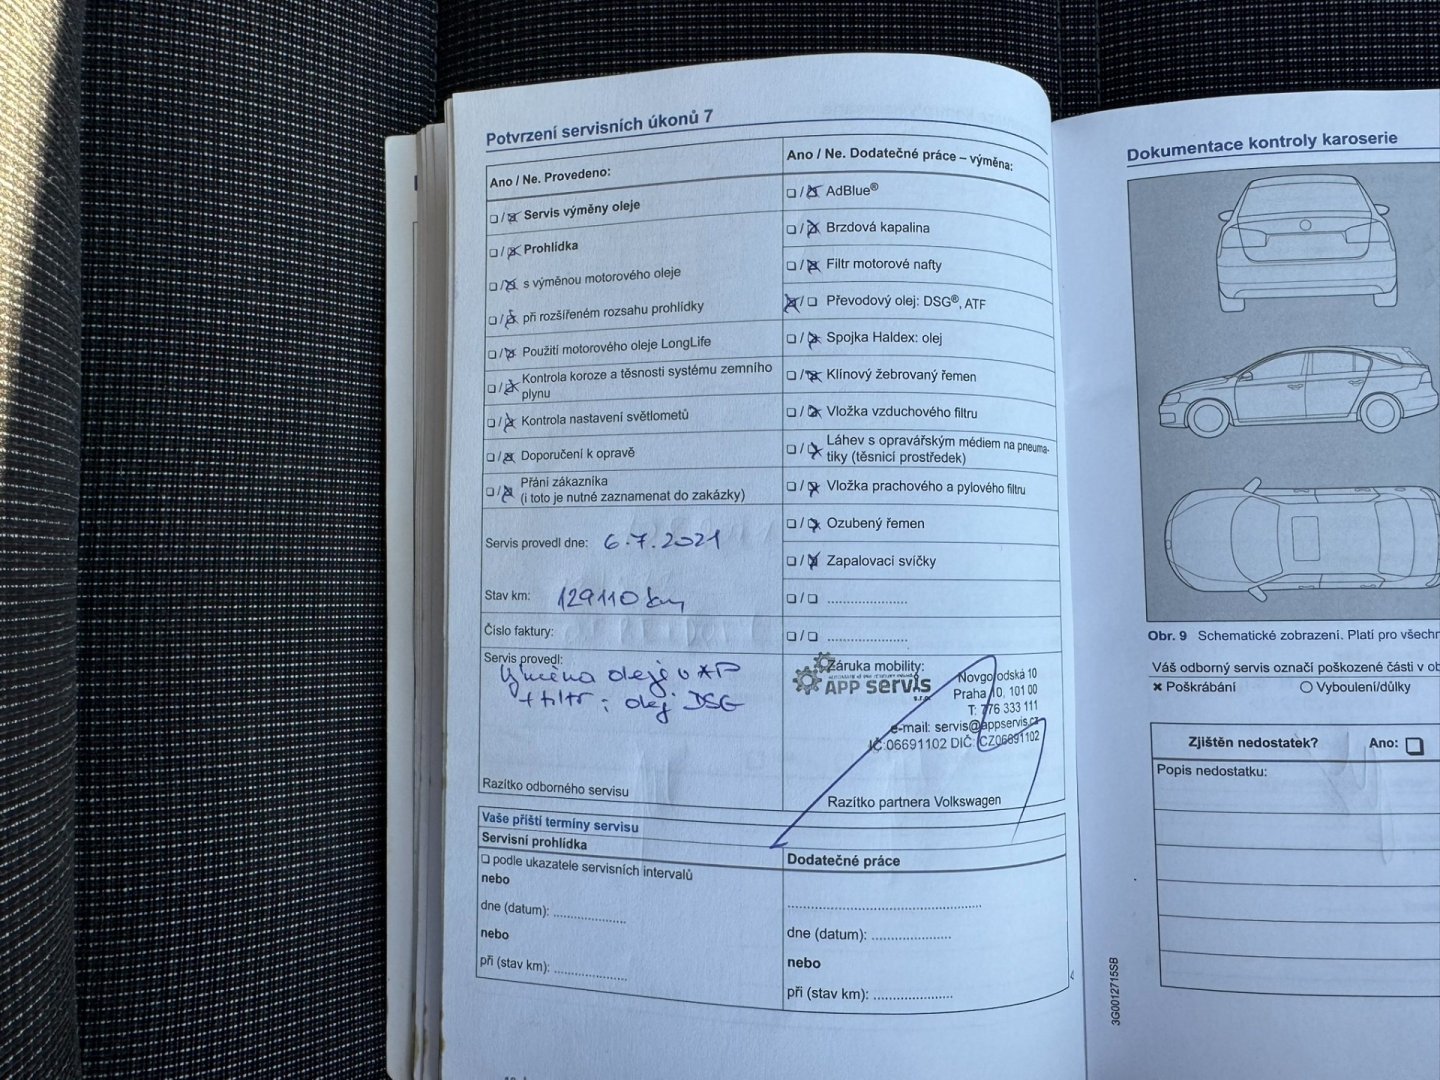 Potvrzení servisních úkonů 7
Ano / Ne. Provedeno:
❏ / ❏ Servis výměny oleje
❏ / ❏ Prohlídka
❏ / ❏ s výměnou motorového oleje
❏ / ❏ při rozšířeném rozsahu prohlídky
❏ / ❏ Použití motorového oleje LongLife
❏ / ❏ Kontrola koroze a těsnosti systému zemního
plynu
❏ / ❏ Kontrola nastavení světlometů
❏ / ❏ Doporučení k opravě
❏ / ❏ Přání zákazníka
(i toto je nutné zaznamenat do zakázky)
Servis provedl dne: 6.7.2021
Stav km: 129110 km
Číslo faktury:
Servis provedl:
Výměna oleje v AP
+ filtr ; olej DSG
Razítko odborného servisu
Ano / Ne. Dodatečné práce – výměna:
❏ / ❏ AdBlue®
❏ / ❏ Brzdová kapalina
❏ / ❏ Filtr motorové nafty
❏ / ❏ Převodový olej: DSG®, ATF
❏ / ❏ Spojka Haldex: olej
❏ / ❏ Klínový žebrovaný řemen
❏ / ❏ Vložka vzduchového filtru
❏ / ❏ Láhev s opravářským médiem na pneuma-
tiky (těsnicí prostředek)
❏ / ❏ Vložka prachového a pylového filtru
❏ / ❏ Ozubený řemen
❏ / ❏ Zapalovací svíčky
❏ / ❏ ......................
❏ / ❏ ......................
Záruka mobility:
APP servis
s.r.o.
Novgorodská 10
Praha 10, 101 00
T: 776 333 111
e-mail: servis@appservis.cz
IČ:06691102 DIČ: CZ06691102
Razítko partnera Volkswagen
Vaše příští termíny servisu
Servisní prohlídka
❏ podle ukazatele servisních intervalů
nebo
dne (datum): ....................
nebo
při (stav km): ....................
Dodatečné práce
......................................................
dne (datum): ......................
nebo
při (stav km): ......................
Dokumentace kontroly karoserie
Obr. 9 Schematické zobrazení. Platí pro všechn
Váš odborný servis označí poškozené části v ob
✖ Poškrábání
○ Vyboulení/důlky
Zjištěn nedostatek? Ano: ❏
Popis nedostatku:
3G0012715SB